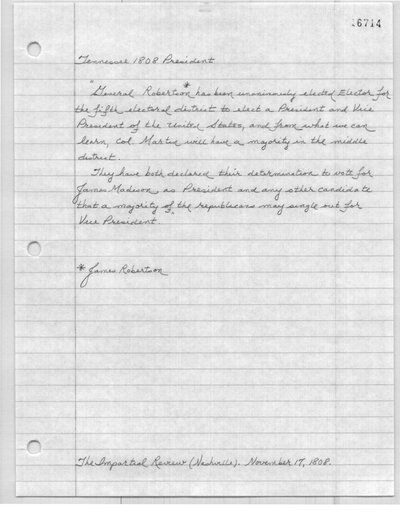 16714
Tennessee 1808 President
"General Robertson* has been unanimously elected Elector for
the fifth electoral district to elect a President and Vice
President of the United States, and from what we can
learn, Col. Martin will have a majority in the middle
district.
They have both declared their determination to vote for
James Madison as President and any other candidate
that a majority of the republicans may single out for
Vice President.
* James Robertson
The Impartial Review (Nashville). November 17, 1808.